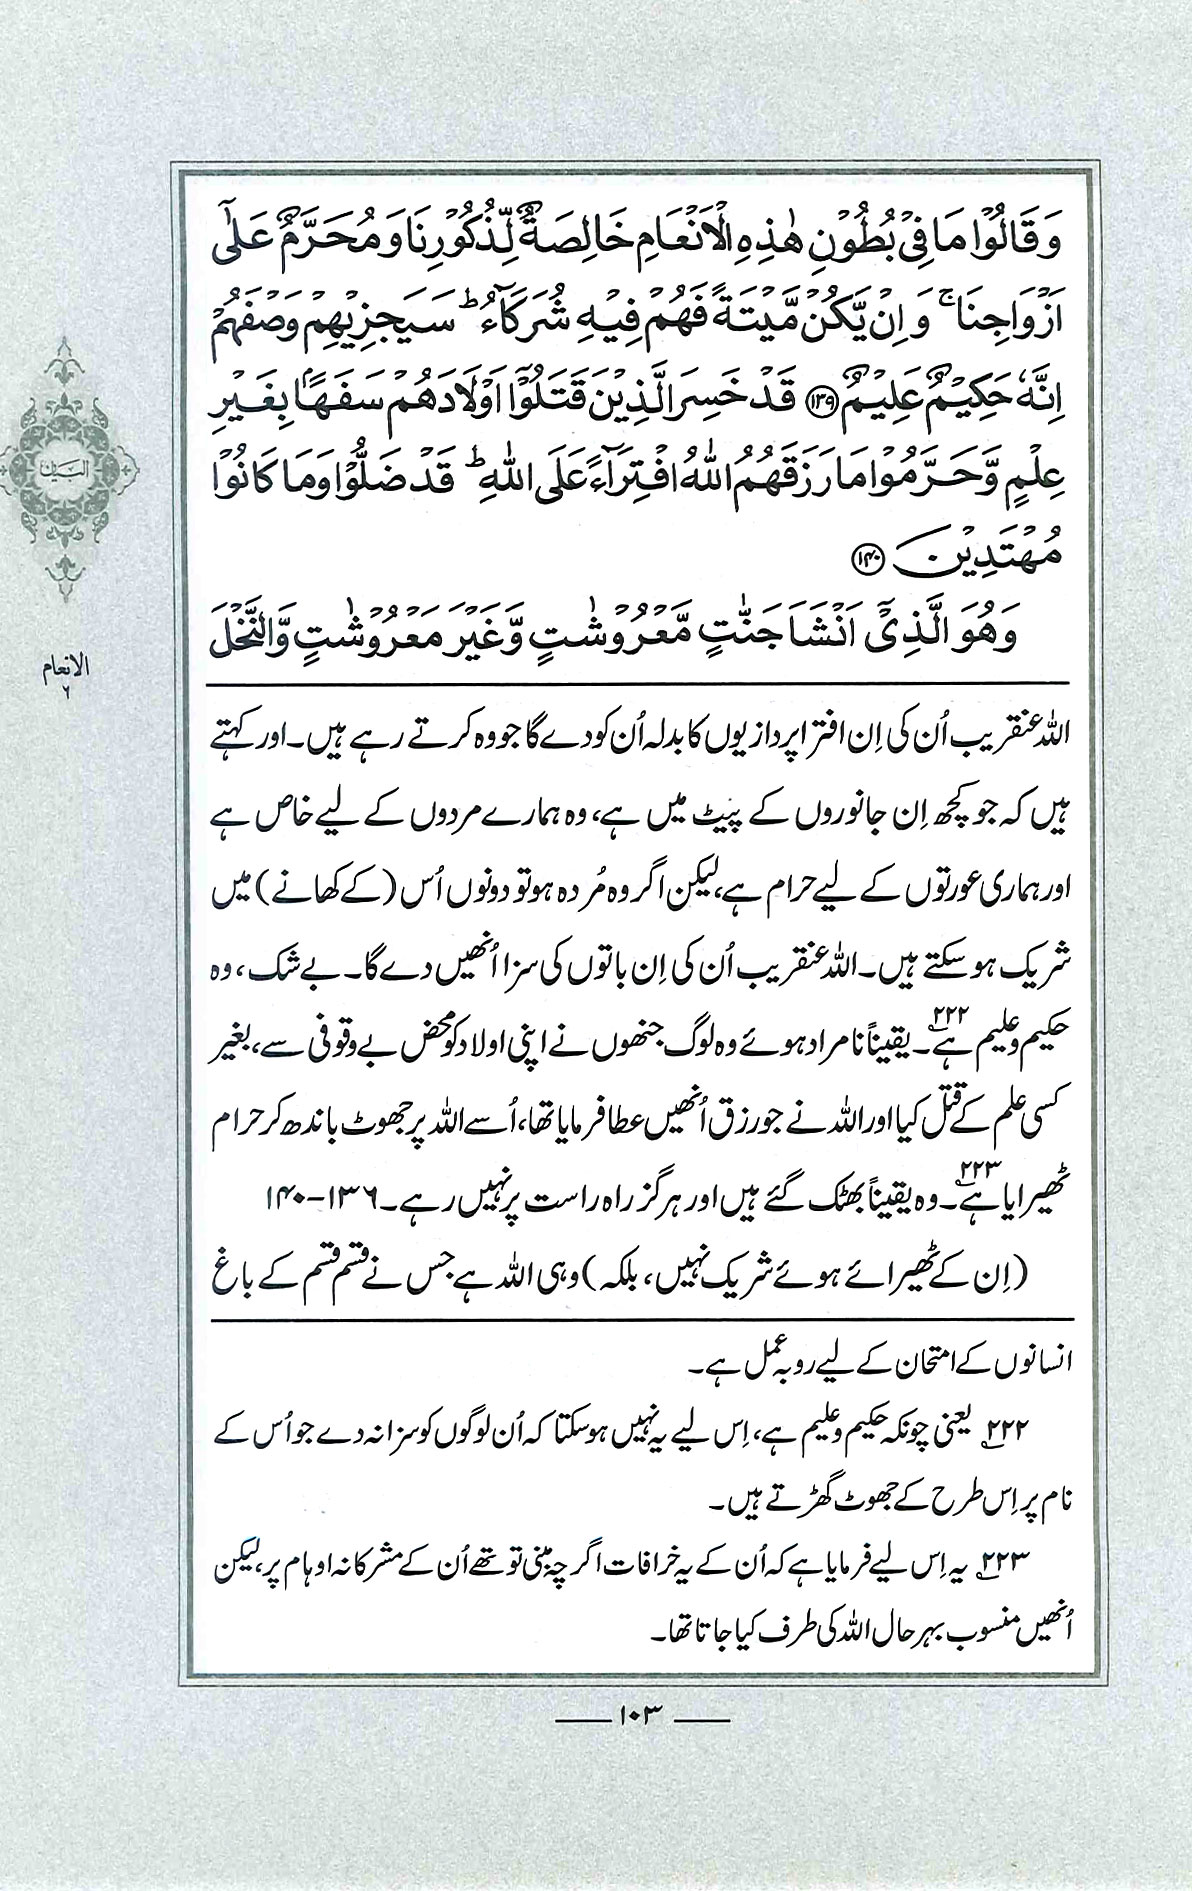 وَقَالُوْا مَا فِيْ بُطُوْنِ هٰذِهِ الْاَنْعَامِ خَالِصَةٌ لِّذُكُوْرِنَا وَمُحَرَّمٌ عَلٰٓى
اَزْوَاجِنَاۚ وَاِنْ يَّكُنْ مَّيْتَةً فَهُمْ فِيْهِ شُرَكَآءُؕ سَيَجْزِيْهِمْ وَصْفَهُمْ
اِنَّهٗ حَكِيْمٌ عَلِيْمٌ ﴿۱۳۹﴾ قَدْ خَسِرَ الَّذِيْنَ قَتَلُوْٓا اَوْلَادَهُمْ سَفَهًاۢ بِغَيْرِ
عِلْمٍ وَّحَرَّمُوْا مَا رَزَقَهُمُ اللّٰهُ افْتِرَآءً عَلَى اللّٰهِؕ قَدْ ضَلُّوْا وَمَا كَانُوْا
مُهْتَدِيْنَ ﴿۱۴۰﴾
وَهُوَ الَّذِيْٓ اَنْشَاَ جَنّٰتٍ مَّعْرُوْشٰتٍ وَّغَيْرَ مَعْرُوْشٰتٍ وَّالنَّخْلَ
اللہ عنقریب اُن کی اِن افترا پردازیوں کا بدلہ اُن کو دے گا جو وہ کرتے رہے ہیں۔ اور کہتے
ہیں کہ جو کچھ اِن جانوروں کے پیٹ میں ہے، وہ ہمارے مردوں کے لیے خاص ہے
اور ہماری عورتوں کے لیے حرام ہے، لیکن اگر وہ مُردہ ہو تو دونوں اُس (کے کھانے) میں
شریک ہو سکتے ہیں۔ اللہ عنقریب اُن کی اِن باتوں کی سزا اُنھیں دے گا۔ بے شک، وہ
حکیم و علیم ہے۲۲۲۔ یقیناً نامراد ہوئے وہ لوگ جنھوں نے اپنی اولاد کو محض بے وقوفی سے، بغیر
کسی علم کے قتل کیا اور اللہ نے جو رزق اُنھیں عطا فرمایا تھا، اُسے اللہ پر جھوٹ باندھ کر حرام
ٹھیرایا ہے۲۲۳۔ وہ یقیناً بھٹک گئے ہیں اور ہرگز راہ راست پر نہیں رہے۔ ۱۳۶-۱۴۰
(اِن کے ٹھیرائے ہوئے شریک نہیں، بلکہ) وہی اللہ ہے جس نے قسم قسم کے باغ
انسانوں کے امتحان کے لیے روبہ عمل ہے۔
۲۲۲ یعنی چونکہ حکیم و علیم ہے، اِس لیے یہ نہیں ہو سکتا کہ اُن لوگوں کو سزا نہ دے جو اُس کے
نام پر اِس طرح کے جھوٹ گھڑتے ہیں۔
۲۲۳ یہ اِس لیے فرمایا ہے کہ اُن کے یہ خرافات اگرچہ مبنی تو تھے اُن کے مشرکانہ اوہام پر، لیکن
اُنھیں منسوب بہرحال اللہ کی طرف کیا جاتا تھا۔
البیان
الانعام
۶
۱۰۳